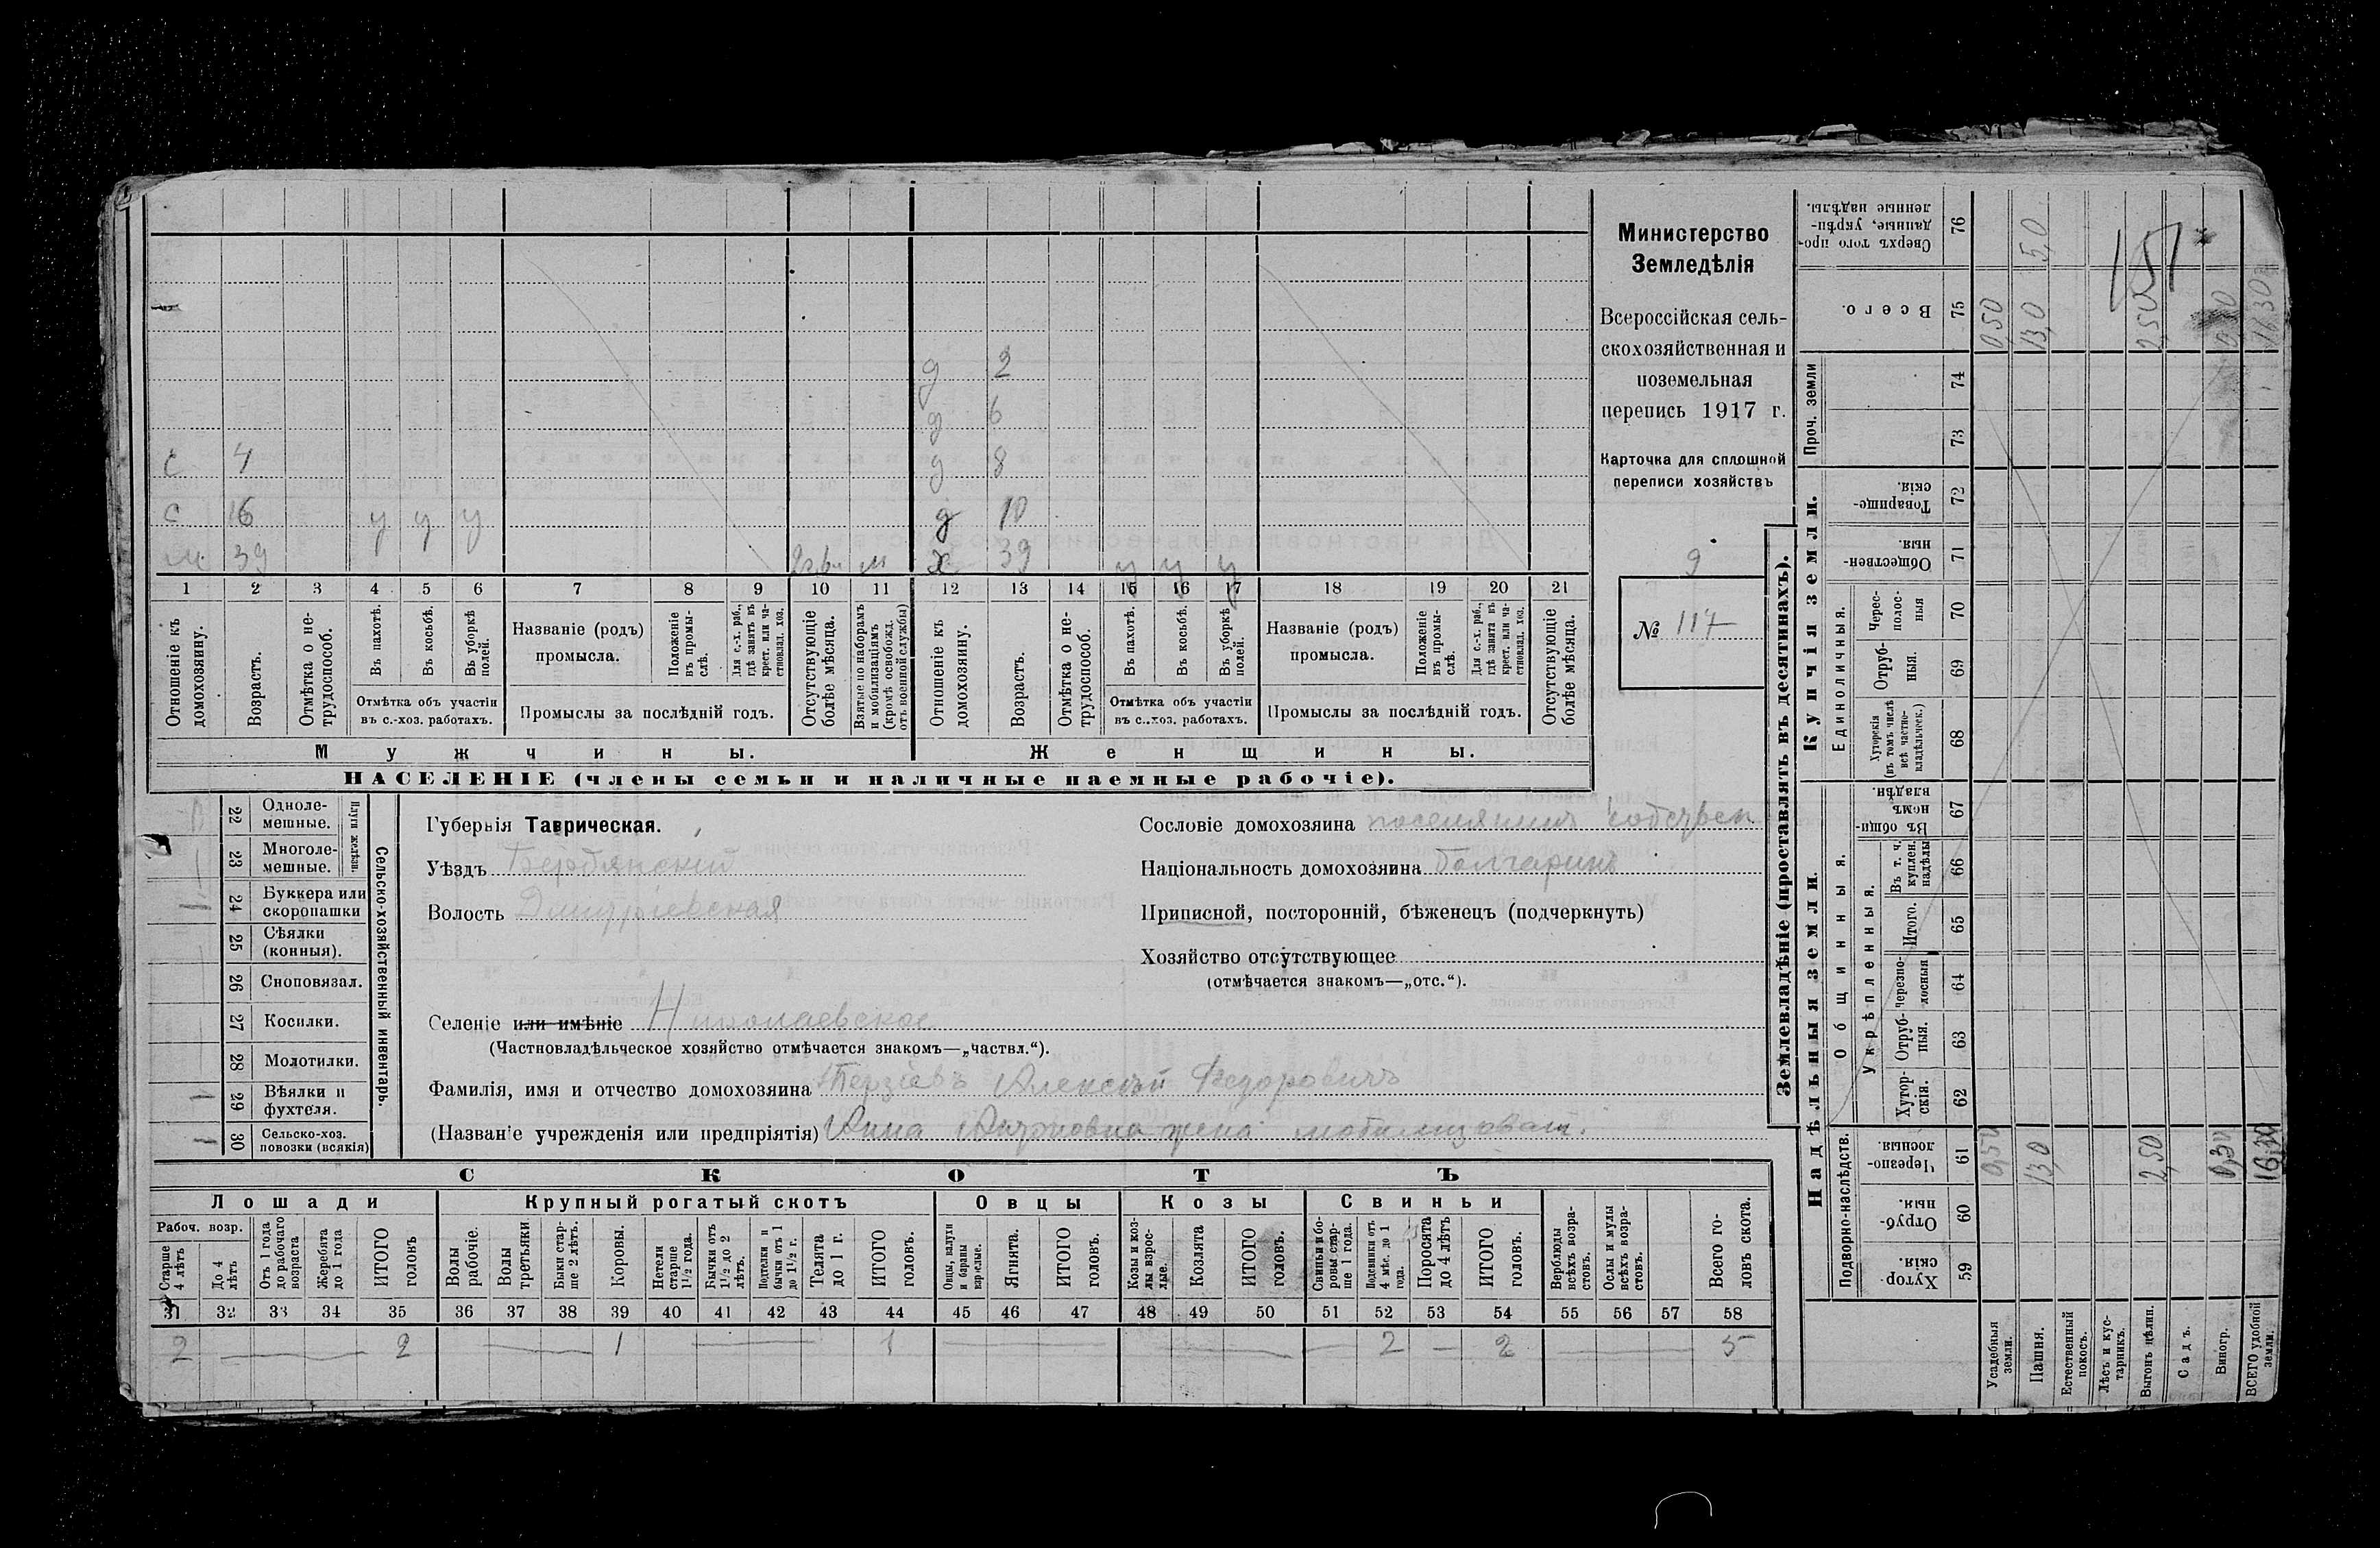 д 2
д 6
с 4 д 8
с 16 у у у д 10
м 39 м х 39 у у у
1 2 3 4 5 6 7 8 9 10 11 12 13 14 15 16 17 18 19 20 21
Отношеніе къ домохозяину.
Возрастъ.
Отмѣтка о нетрудоспособ.
Въ пахотѣ.
Въ косьбѣ.
Въ уборкѣ полей.
Отмѣтка объ участіи
въ с.-хоз. работахъ.
Названіе (родъ)
промысла.
Положеніе въ промыслѣ.
Для с.-х. раб., гдѣ занятъ въ крест. или частновлад. хоз.
Промыслы за послѣдній годъ.
Отсутствующіе болѣе мѣсяца.
Взятые по наборамъ и мобилизаціямъ (кромѣ освобожд. отъ военной службы)
Отношеніе къ домохозяину.
Возрастъ.
Отмѣтка о нетрудоспособ.
Въ пахотѣ.
Въ косьбѣ.
Въ уборкѣ полей.
Отмѣтка объ участіи
въ с.-хоз. работахъ.
Названіе (родъ)
промысла.
Положеніе въ промыслѣ.
Для с.-х. раб., гдѣ занята въ крест. или частновлад. хоз.
Промыслы за послѣдній годъ.
Отсутствующіе болѣе мѣсяца.
Мужчины.
Женщины.
НАСЕЛЕНІЕ (члены семьи и наличные наемные рабочіе).
Министерство
Земледѣлія
Всероссійская сель-
скохозяйственная и
поземельная
перепись 1917 г.
Карточка для сплошной
переписи хозяйствъ
9
№ 117
22 Одноле-
мешные.
23 Многоле-
мешные.
Плуги желѣзн.
24 Буккера или
скоропашки
25 Сѣялки
(конныя).
26 Сноповязал.
27 Косилки.
28 Молотилки.
29 Вѣялки и
фухтеля.
1
30 Сельско-хоз.
повозки (всякія)
1
Сельско-хозяйственный инвентарь.
Губернія Таврическая.
Уѣздъ Бердянский
Волость Дмитріевская
Селеніе или имѣніе Николаевское
(Частновладѣльческое хозяйство отмѣчается знакомъ—„частвл.“).
Фамилія, имя и отчество домохозяина Терзіевъ Алексѣй Федоровичъ
(Названіе учрежденія или предпріятія) Анна жена мобилизован.
Сословіе домохозяина поселянинъ собствен
Національность домохозяина болгаринъ
Приписной, посторонній, бѣженецъ (подчеркнуть)
Хозяйство отсутствующее
(отмѣчается знакомъ—„отс.“).
СКОТЪ
Лошади
Крупный рогатый скотъ
Овцы
Козы
Свиньи
Рабоч. возр.
Старше 4 лѣтъ
До 4 лѣтъ
Отъ 1 года до рабочаго возраста
Жеребята до 1 года
ИТОГО головъ
Волы рабочіе.
Волы третьяки.
Быки старше 2 лѣтъ.
Коровы.
Нетели старше 1 1/2 года.
Бычки отъ 1 1/2 до 2 лѣтъ.
Подтелки и бычки отъ 1 до 1 1/2 г.
Телята до 1 г.
ИТОГО головъ.
Овцы, валухи и бараны взрослые.
Ягнята.
ИТОГО головъ.
Козы и козлы взрослые.
Козлята
ИТОГО головъ.
Свиньи и боровы старше 1 года.
Подсвинки отъ 4 мѣс. до 1 года.
Поросята до 4 лѣтъ
ИТОГО головъ.
Верблюды всѣхъ возрастовъ.
Ослы и мулы всѣхъ возрастовъ.
Всего головъ скота.
31 32 33 34 35 36 37 38 39 40 41 42 43 44 45 46 47 48 49 50 51 52 53 54 55 56 57 58
2 — 2 — 1 — 1 — — — 2 — 2 — 5
Землевладѣніе (проставлять въ десятинахъ).
Надѣльныя земли.
Купчія земли.
Проч. земли
Подворно-наслѣдств.
Общинныя.
Укрѣпленныя.
Единоличныя.
Хуторскія. 59
Отрубныя. 60
Черезполосныя. 61
Хуторскія. 62
Отрубныя. 63
Черезполосныя 64
Итого. 65
Въ т. ч. куплен. надѣлы 66
Въ общинномъ владѣн. 67
Хуторскія (въ томъ числѣ всѣ частновладѣльческ.) 68
Отрубныя. 69
Чересполосныя 70
Общественныя. 71
Товарищескія. 72
73
74
Всего. 75
Сверхъ того проданные, укрѣпленные надѣлы. 76
Усадебныя земли. 0,50 0,50
Пашня. 13,0 13,0 5,0
Естественный покосъ.
Лѣсъ и кустарникъ.
Выгонъ цѣлин. 2,50 2,50
Садъ.
Виногр. 0,30 0,30
ВСЕГО удобной земли. 16,30 16,30
151